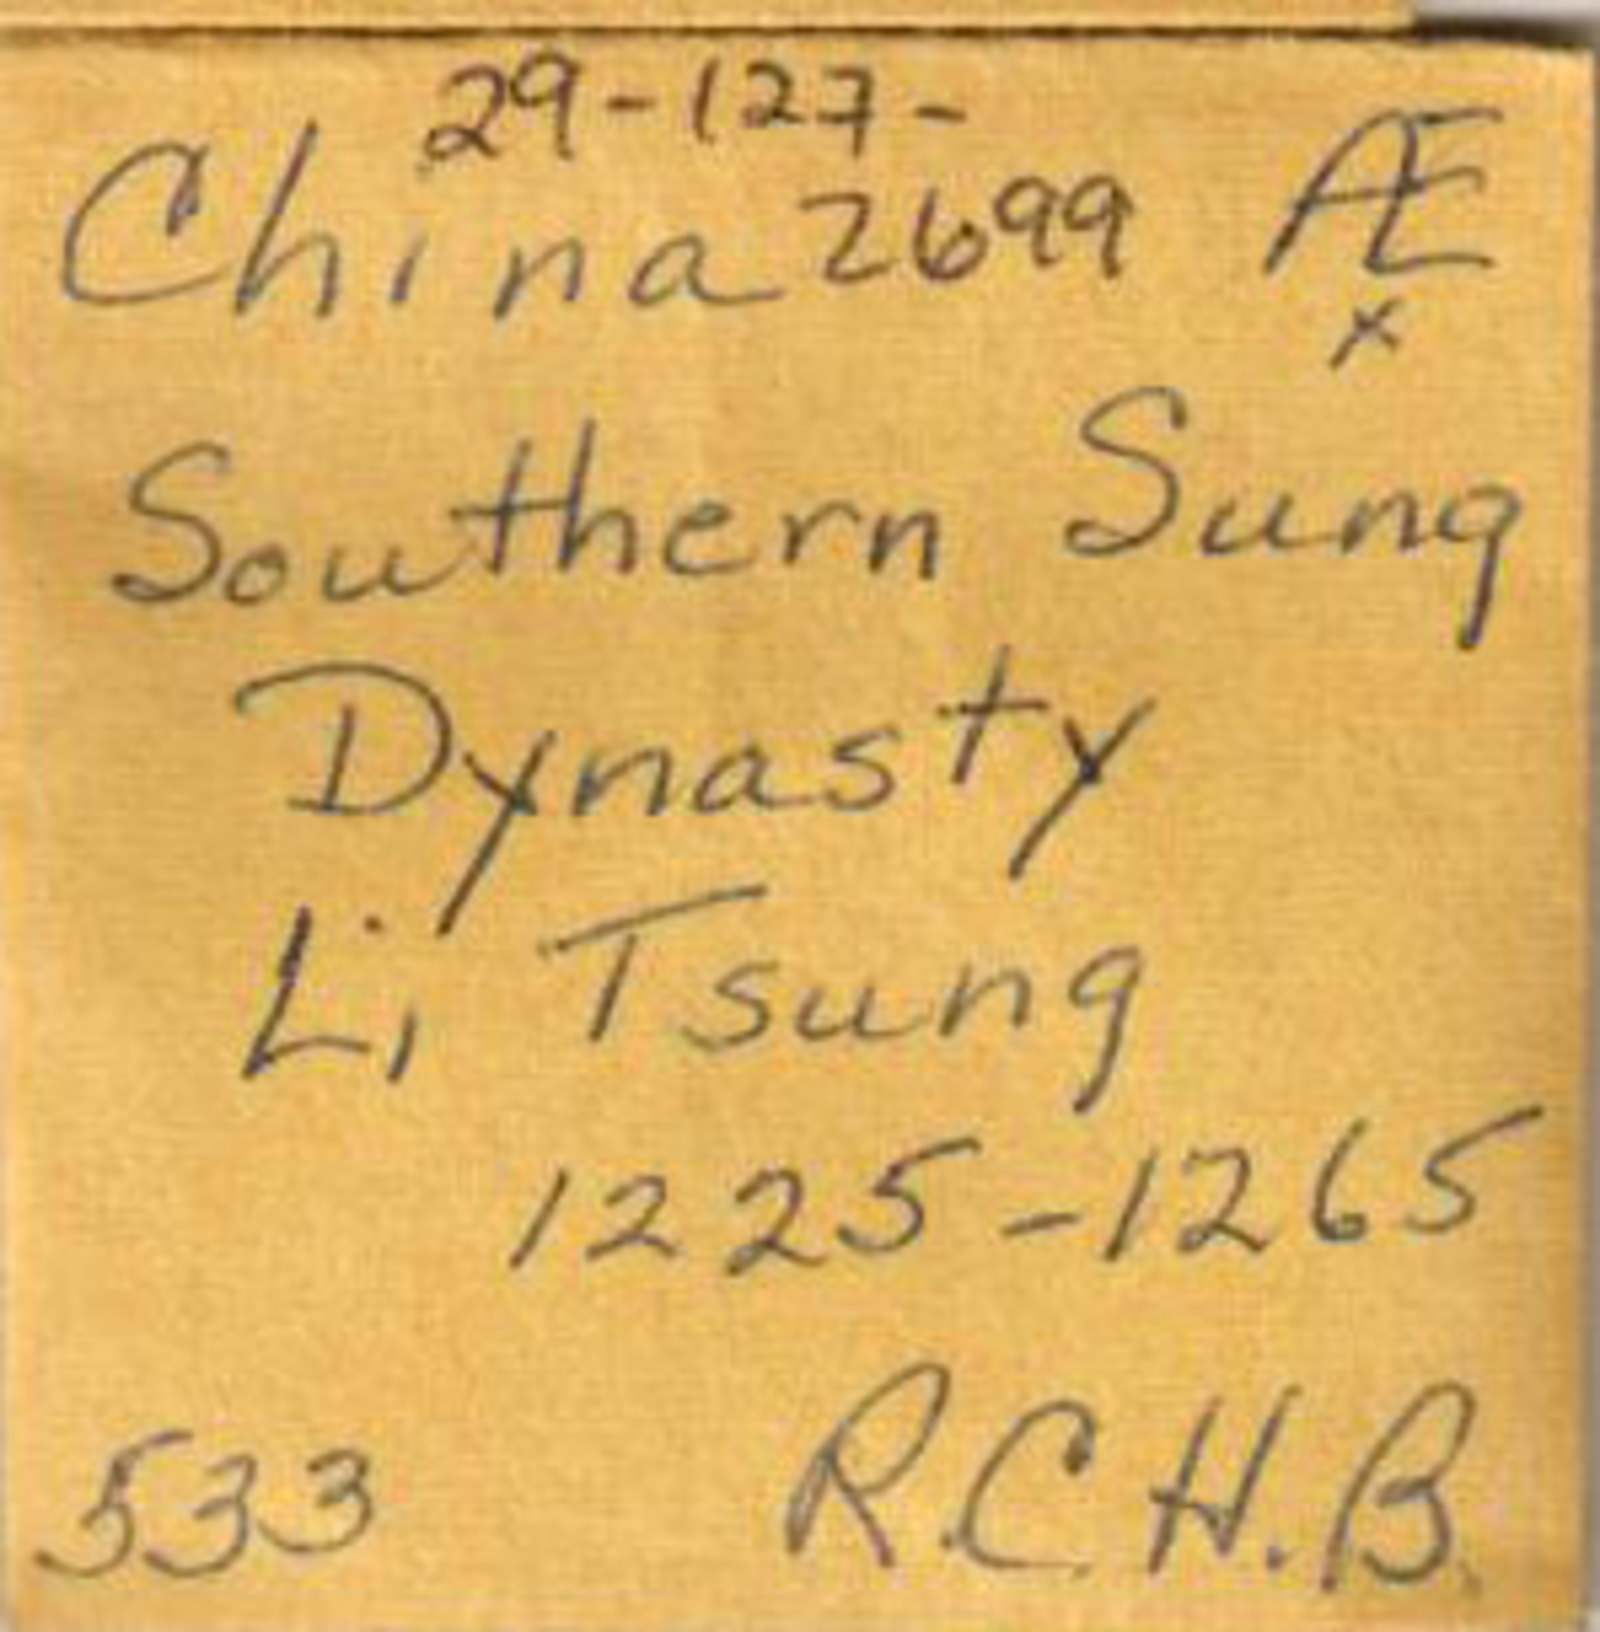 29-127-
China 2699 Æ
x
Southern Sung
Dynasty
Li Tsung
1225-1265
533 R.C.H.B.